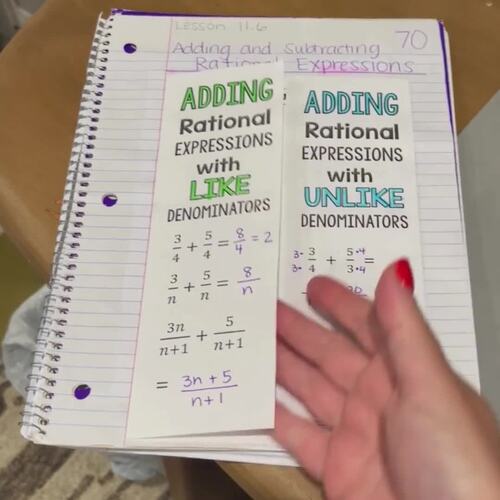 Lesson 11.6
70
Adding and Subtracting
Rational Expressions
ADDING
Rational
EXPRESSIONS
with
LIKE
DENOMINATORS
3/4 + 5/4 = 8/4 = 2
3/n + 5/n = 8/n
3n/n+1 + 5/n+1
= 3n+5/n+1
ADDING
Rational
EXPRESSIONS
with
UNLIKE
DENOMINATORS
3·3/3·4 + 5·4/3·4 =